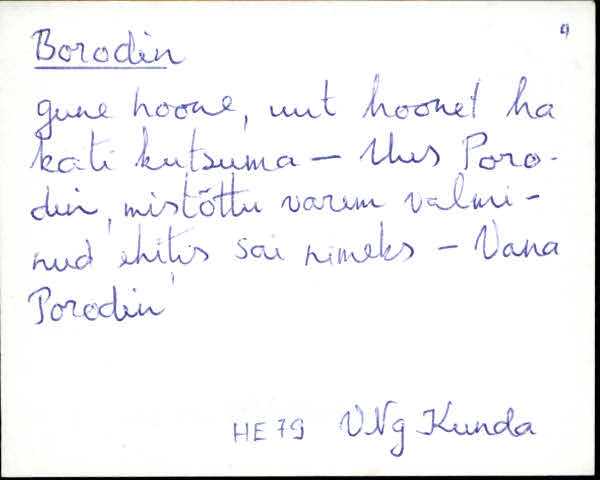 4
Borodin
gune hoone, uut hoonet ha
kati kutsuma – Uus Poro-
din, mistõttu varem valmi-
nud ehitis sai nimeks – Vana
Porodin
HE 79 VNg Kunda